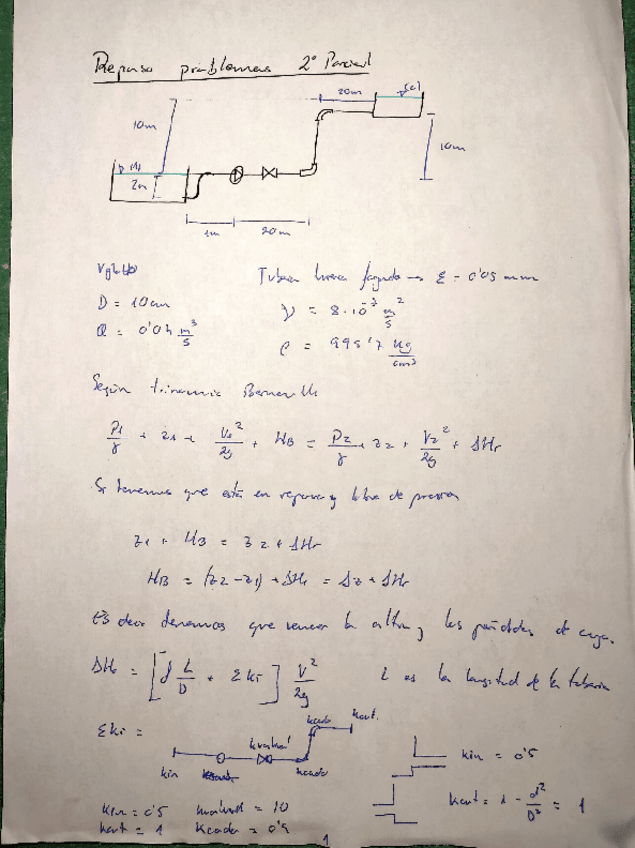 Repaso problemas 2º Parcial
20m
10m
10m
2m
1m
20m
D = 10cm
Q = 0'04 m³/s
Tubería hierro fundido → ε = 0'05 mm
ν = 8·10⁻⁷ m²/s
ρ = 995'7 kg/cm³
Según trinomio Bernoulli
P1/γ + z1 + V1²/2g + HB = P2/γ + z2 + V2²/2g + ΔHr
Si tenemos que está en reposo y libre de presión
z1 + HB = z2 + ΔHr
HB = (z2 - z1) + ΔHr = Δz + ΔHr
Es decir tenemos que vencer la altura y las pérdidas de carga.
ΔHr = [f L/D + Σki] V²/2g
L es la longitud de la tubería
Σki =
kin
kcodo
kcodo
kout
kin = 0'5
kout = 1 - d²/D² = 1
kin = 0'5
= 10
kout = 1
kcodo = 0'9
1